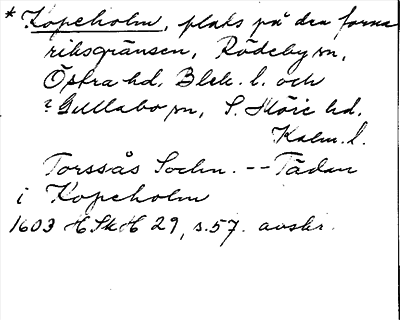 * Kopeholm, plats på den forna
riksgränsen, Rödeby sn,
Östra hd. Blek. l. och
? Gullabo sn, S. Möre hd.
Kalm. l.
Torssås Sochn. -- Tädan
i Kopeholm
1603 HSkH 29, s. 57. avskr.